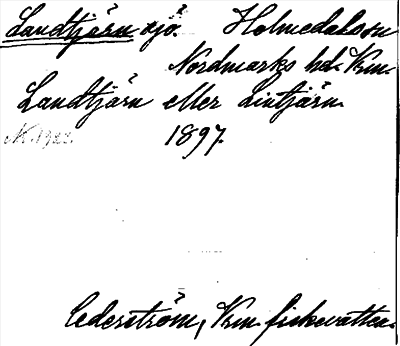 Landtjärn sjö. Holmedalssn
Nordmarks hd. Vrm.
Landtjärn eller Lintjärn.
1897.
Cederström, Vrm. fiskevatten.